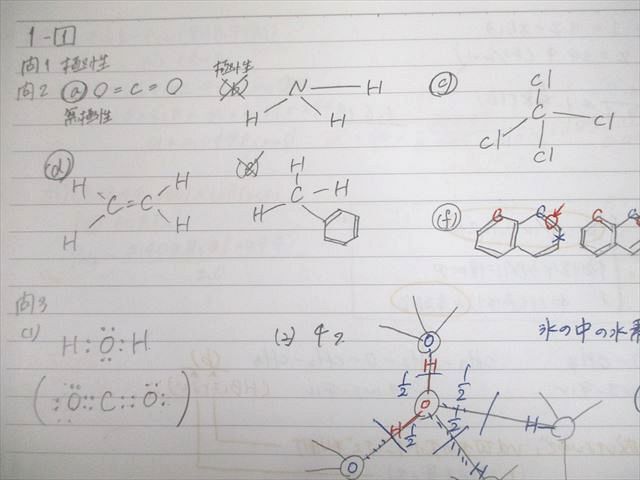 1-1
問1 極性
問2 (a) O=C=O
無極性
極性
(b)
N H
H H
(c)
Cl
C
Cl Cl
Cl
(d)
H H
C=C
H H
(e)
H
C H
H
(f)
問3
(1) H:O:H
(:O::C::O:)
(2) 4コ
氷の中の水素
O
H
1/2 1/2
O
H 1/2 1/2 H
O H